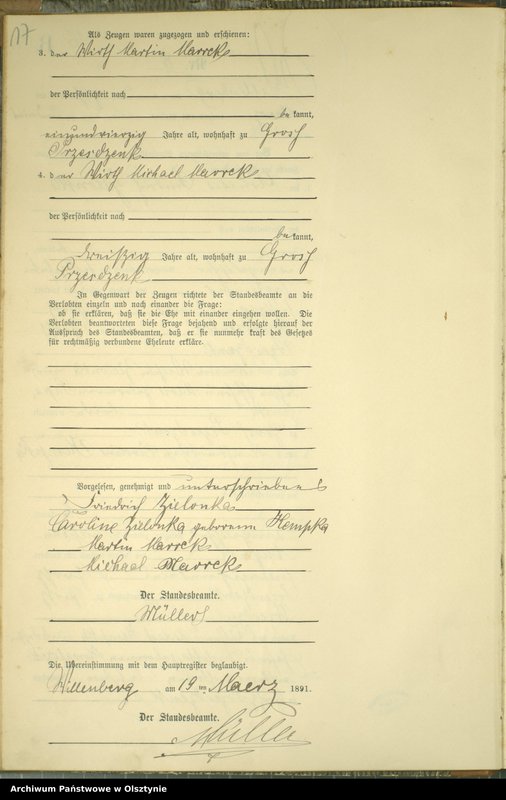 17
Als Zeugen waren zugezogen und erschienen:
3. der Wirth Martin Marrek
der Persönlichkeit nach
be kannt,
einundvierzig Jahre alt, wohnhaft zu Groß
Przesdzenk
4. der Wirth Michael Marrek
der Persönlichkeit nach
be kannt,
dreißig Jahre alt, wohnhaft zu Groß
Przesdzenk
In Gegenwart der Zeugen richtete der Standesbeamte an die
Verlobten einzeln und nach einander die Frage:
ob sie erklären, daß sie die Ehe mit einander eingehen wollen. Die
Verlobten beantworteten diese Frage bejahend und erfolgte hierauf der
Ausspruch des Standesbeamten, daß er sie nunmehr kraft des Gesetzes
für rechtmäßig verbundene Eheleute erkläre.
Vorgelesen, genehmigt und unterschrieben
Friedrich Zielonka
Caroline Zielonka geborene Hempka
Martin Marrek
Michael Marrek
Der Standesbeamte.
Müller
Die Übereinstimmung mit dem Hauptregister beglaubigt.
Willenberg am 19 ten Maerz 1891.
Der Standesbeamte.
Müller
Archiwum Państwowe w Olsztynie